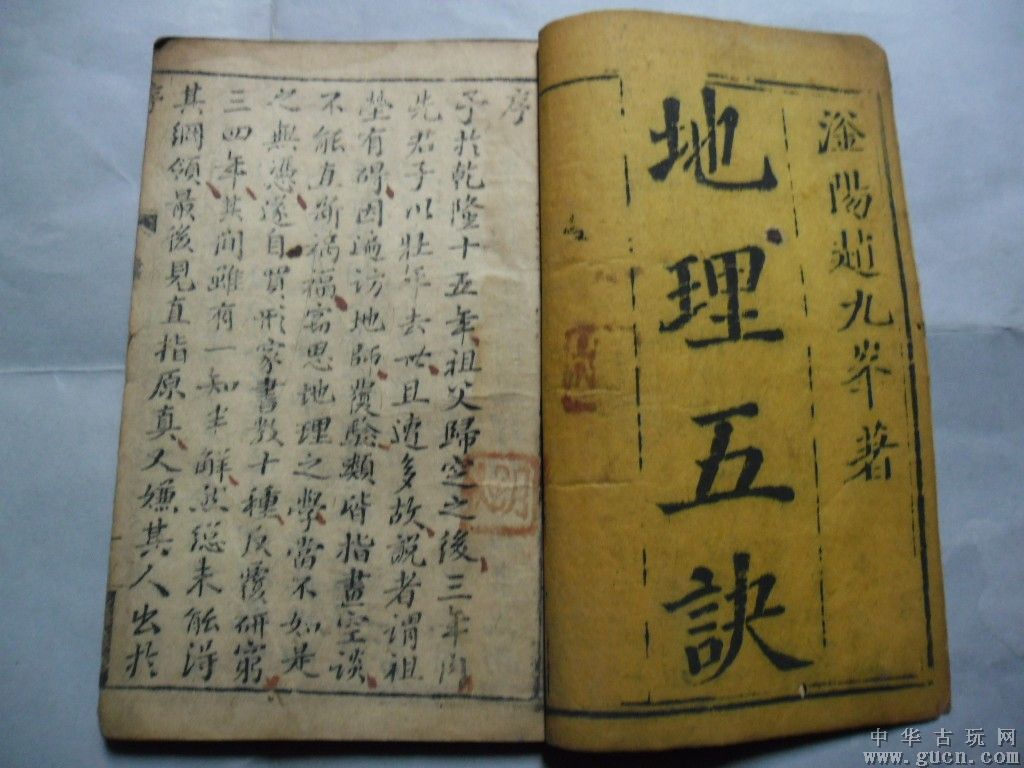 滏陽趙九峯著
地理五訣
序
予於乾隆十五年祖父歸窆之後三年內
先君子以壯年去世且遭多故說者謂祖
塋有碍因遍访地師覆驗類皆指畫空談
不能直斷禍福窃思地理之學當不如是
之無憑遂自買形家書数十種反覆研窮
三四年其间雖有一知半解然总未能得
其綱領最後見直指原真又嫌其人出於
序
中华古玩网
www.gucn.com